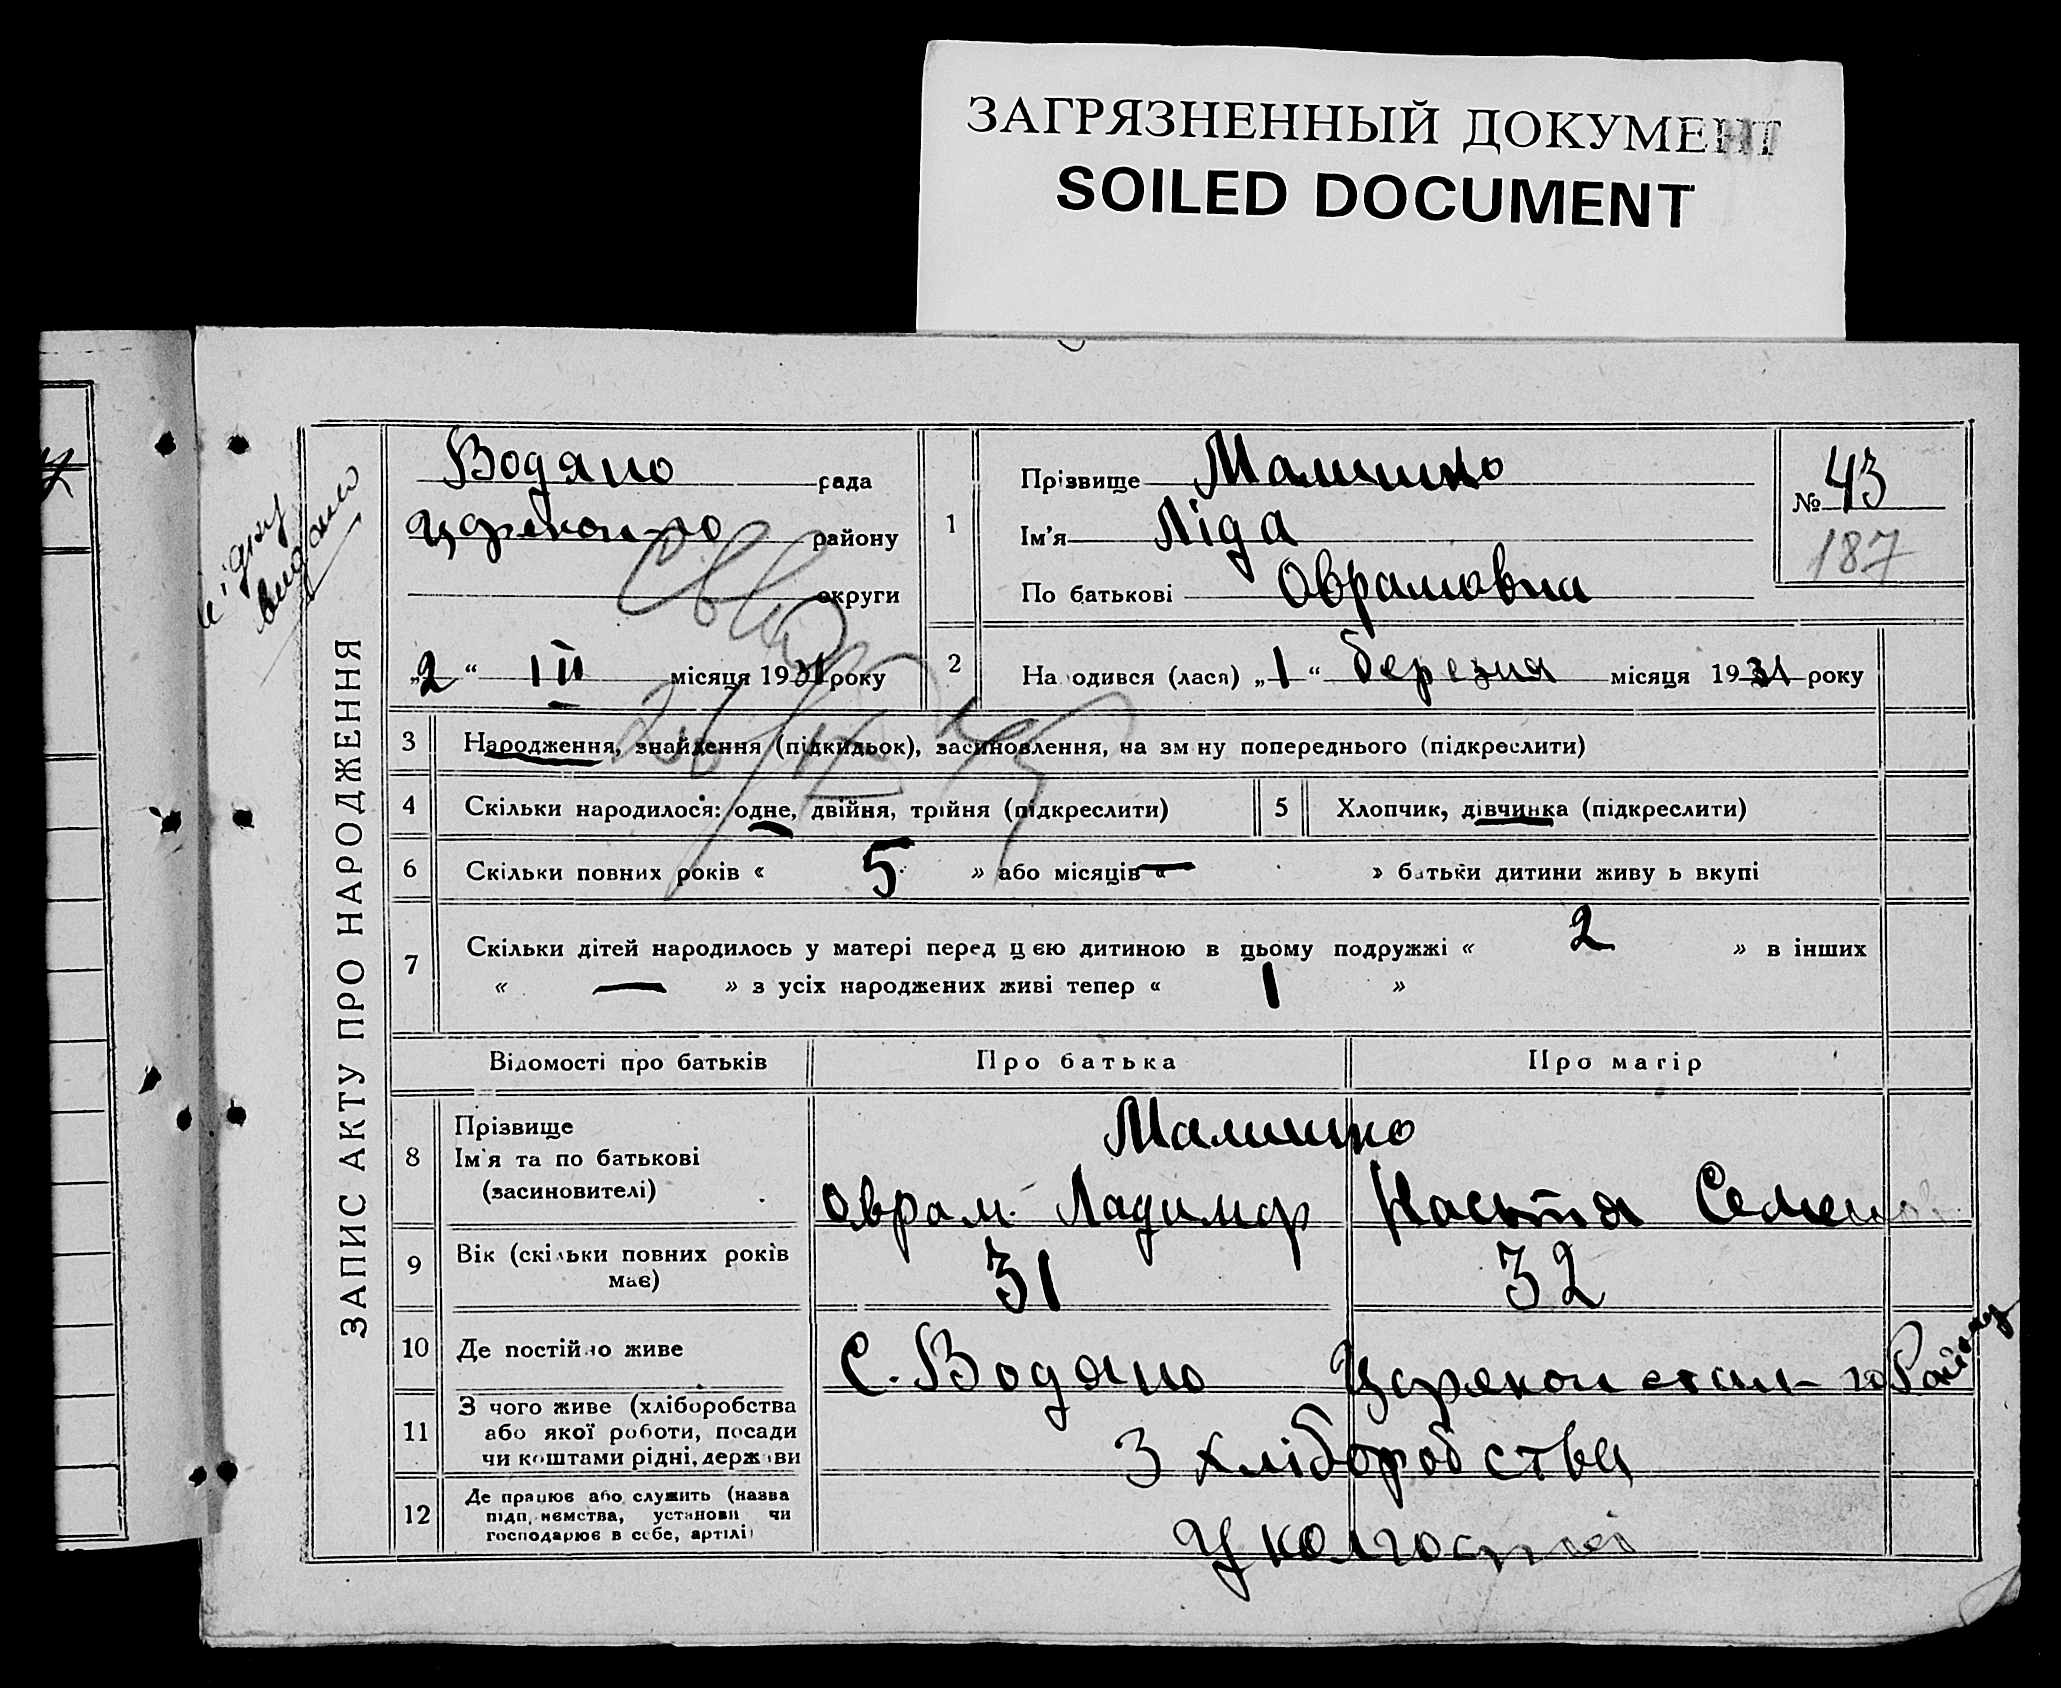 ЗАГРЯЗНЕННЫЙ ДОКУМЕНТ
SOILED DOCUMENT
ЗАПИС АКТУ ПРО НАРОДЖЕННЯ
Водяно рада
району
округи
„2“ III місяця 1931 року
1
Прізвище Малишко
Ім'я Ліда
По батькові Оврамовна
№ 43
187
2
Народився (лася) „1“ березня місяця 1931 року
3 Народження, знайдення (підкидьок), засиновлення, на зміну попереднього (підкреслити)
4 Скільки народилося: одне, двійня, трійня (підкреслити)
5 Хлопчик, дівчинка (підкреслити)
6 Скільки повних років « 5 » або місяців « — » батьки дитини живуть вкупі
7 Скільки дітей народилось у матері перед цією дитиною в цьому подружжі « 2 » в інших
« — » з усіх народжених живі тепер « 1 »
Відомості про батьків Про батька Про матір
8 Прізвище
Ім'я та по батькові
(засиновителі)
Малишко
Оврам Ладимир Настя Семенов
9 Вік (скільки повних років
має)
31 32
10 Де постійно живе
С. Водяно
11 З чого живе (хліборобства
або якої роботи, посади
чи коштами рідні, держави
З хліборобства
12 Де працює або служить (назва
підприємства, установи чи
господарює в себе, артілі)
У колгоспі